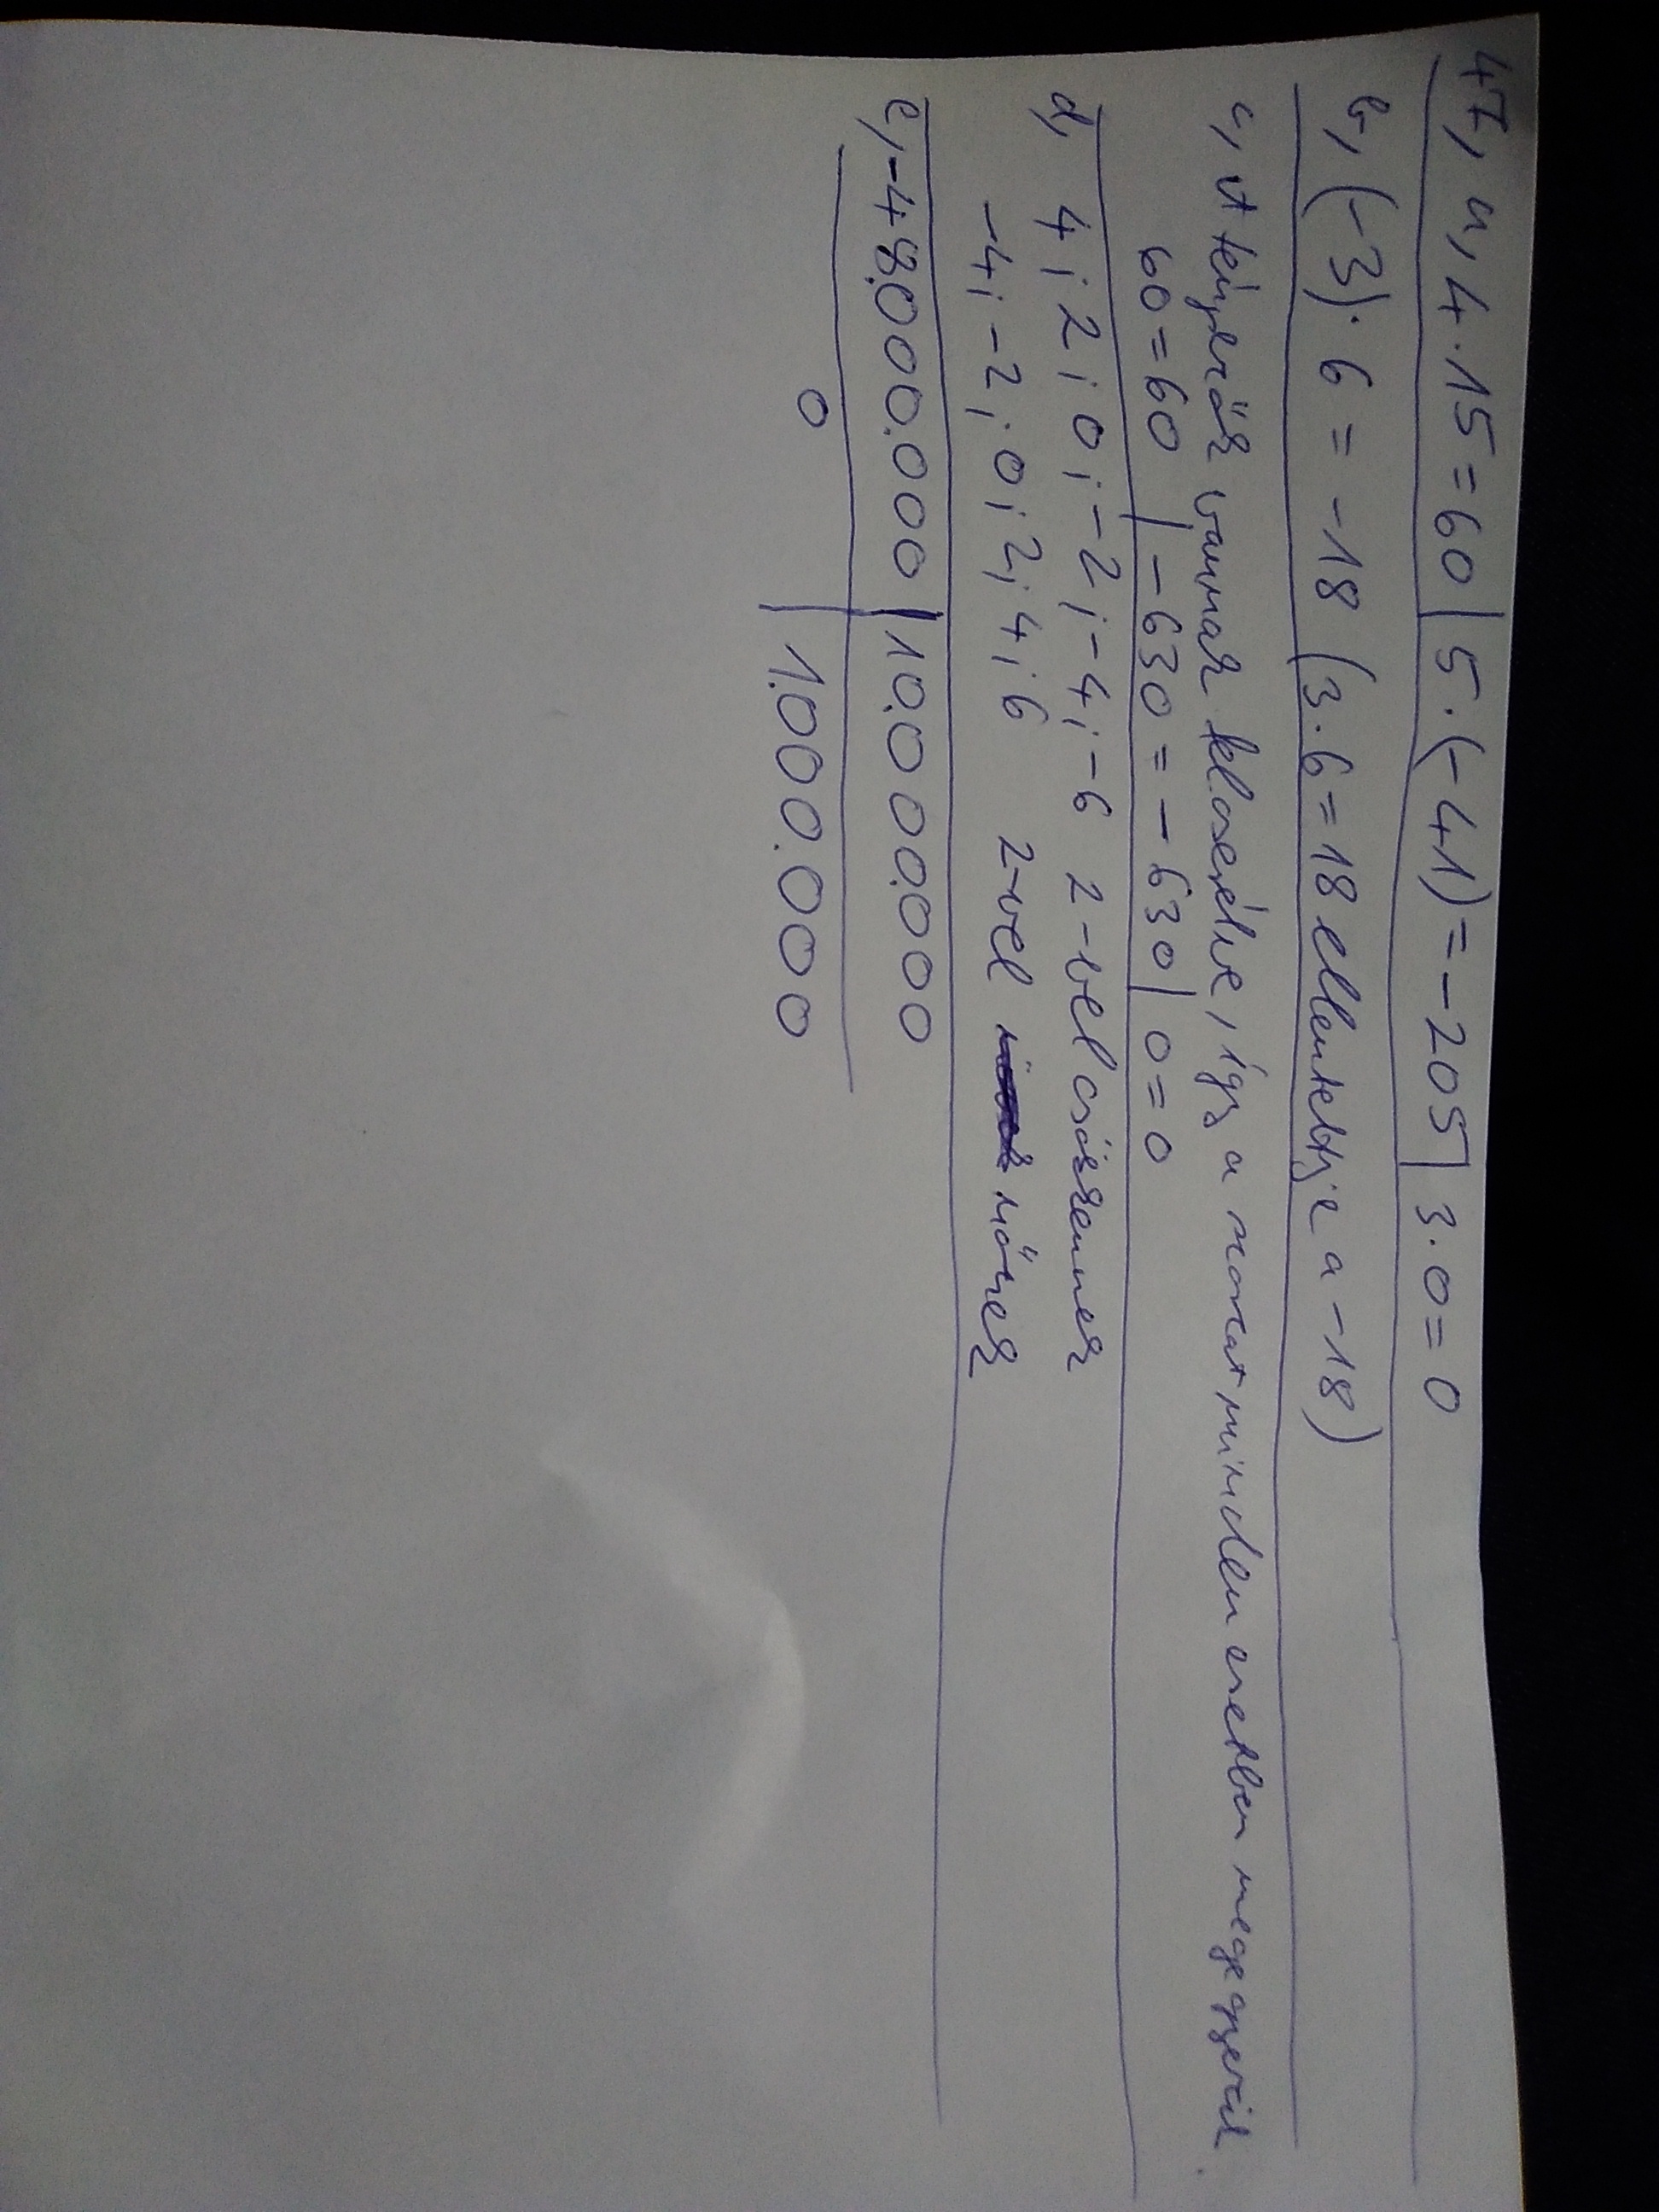 47, a, 4·15=60 | 5·(-41)=-205 | 3·0=0
b, (-3)·6=-18 (3·6=18 ellentettje a -18)
c, A tényezők vannak felcserélve, így a szorzat minden esetben megegyezik.
60=60 | -630=-630 | 0=0
d, 4; 2; 0; -2; -4; -6 2-vel csökkennek
-4; -2; 0; 2; 4; 6 2-vel nőnek
e, -48.000.000 | 10.000.000
0 | 1.000.000